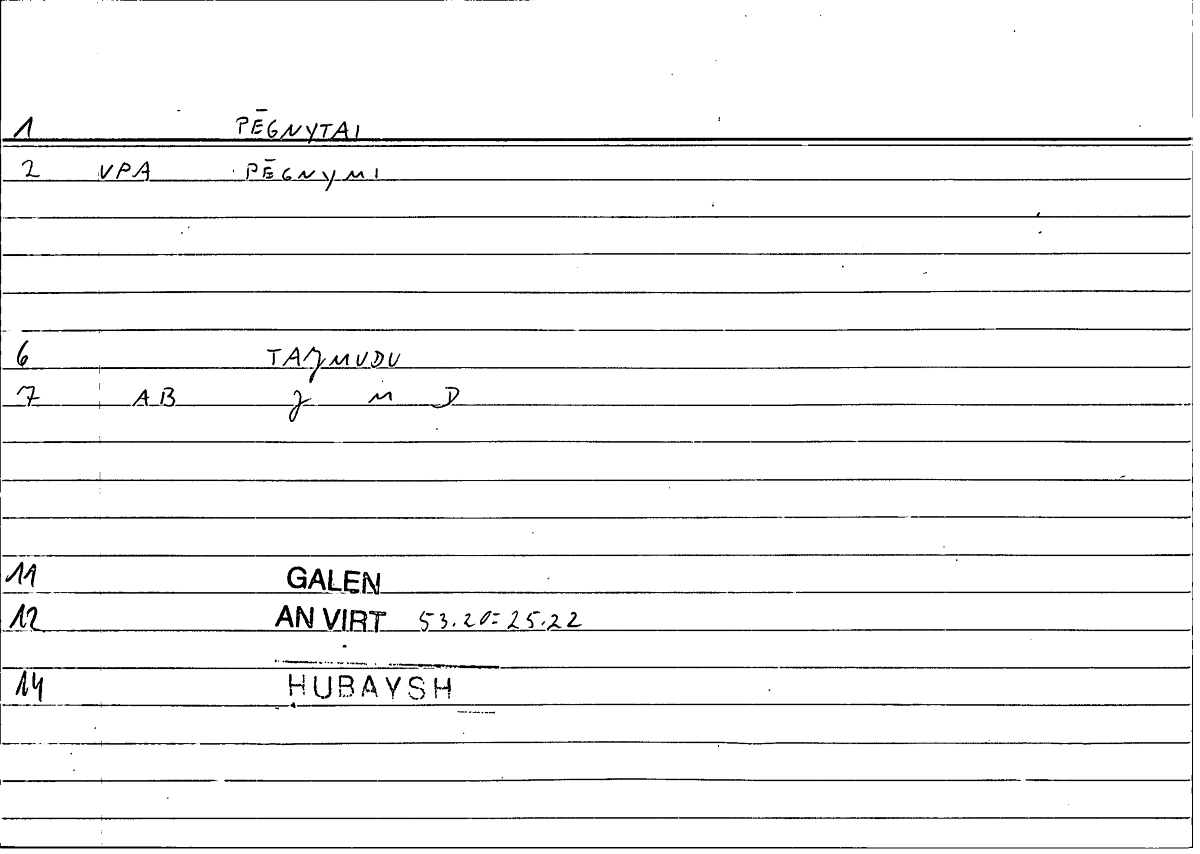 1 PĒGNYTAI
2 VPA PĒGNYMI
6 TAJMUDU
7 AB J M D
11 GALEN
12 AN VIRT 53.20=25.22
14 HUBAYSH